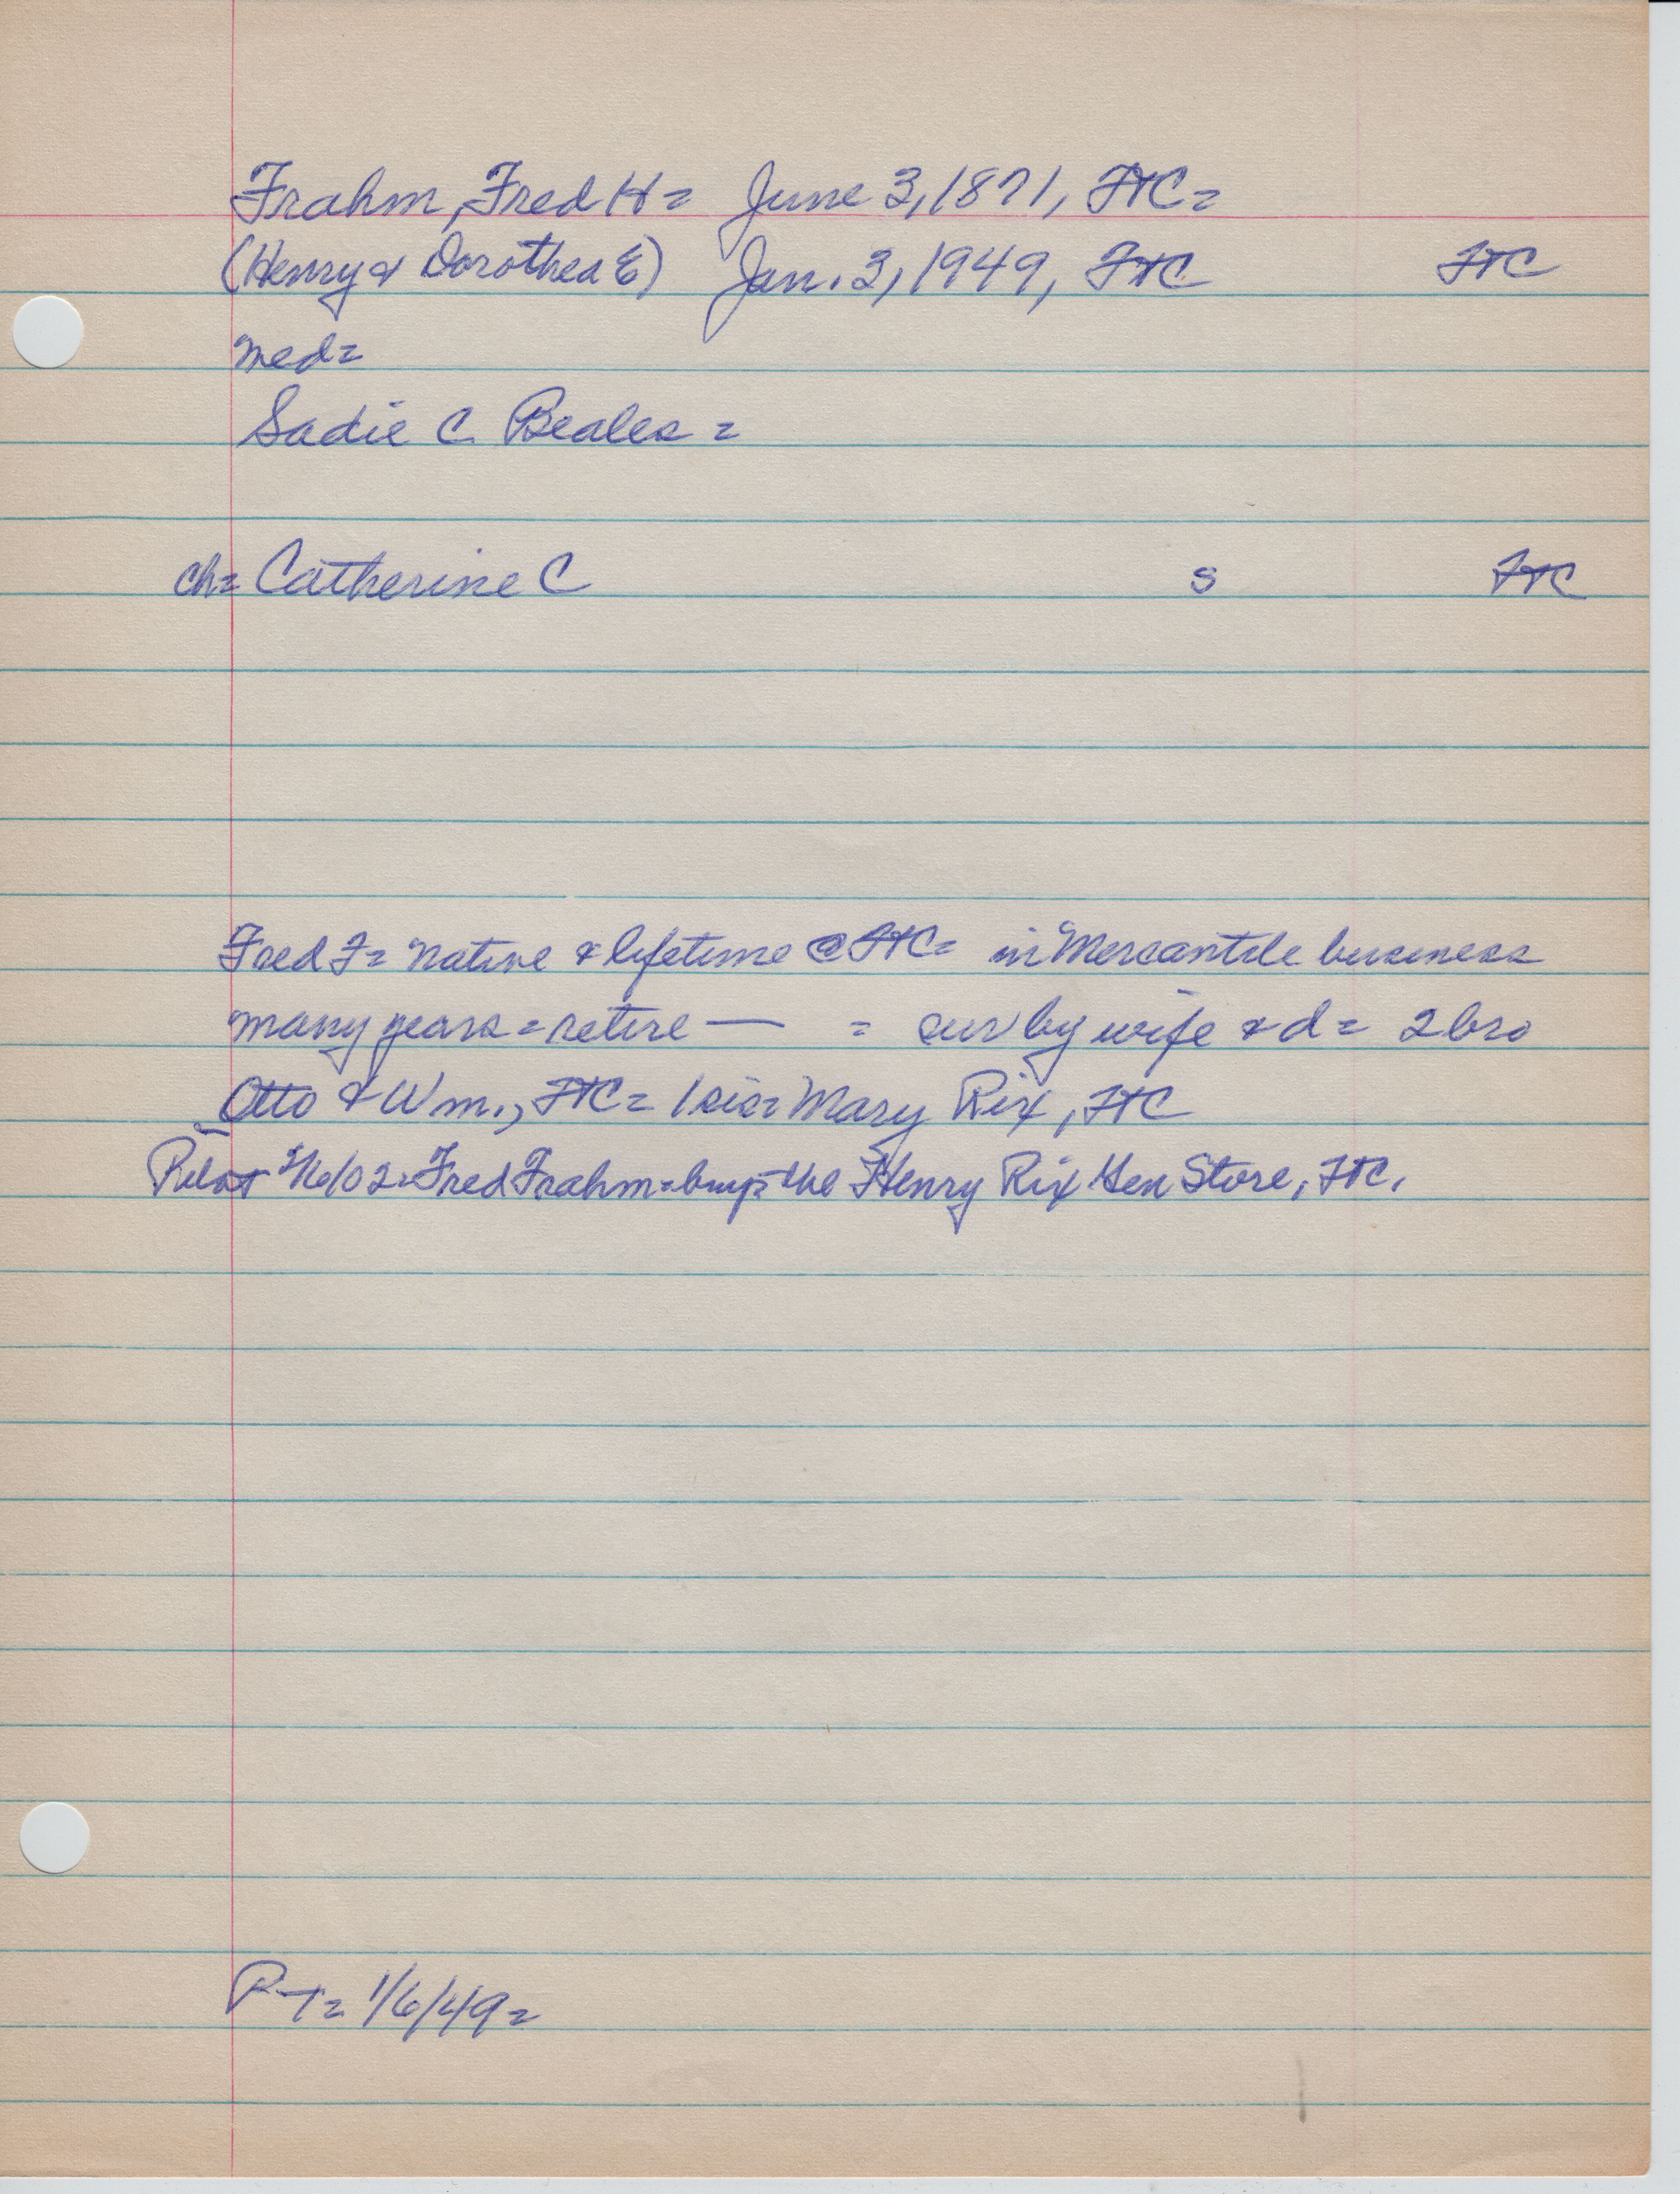 Frahm, Fred H = June 3, 1871, FTC =
(Henry & Dorothea E) Jan. 3, 1949, FTC FTC
med =
Sadie C. Beales =
ch = Catherine C S FTC
Fred F = native & lifetime @ FTC = in Mercantile business
many years = retire — = sur by wife & d = 2 bro
Otto & Wm., FTC = 1 sis = Mary Rix, FTC
Pilot /6/02 = Fred Frahm = buy = the Henry Rix Gen Store, FTC.
P-T = 1/6/49 =